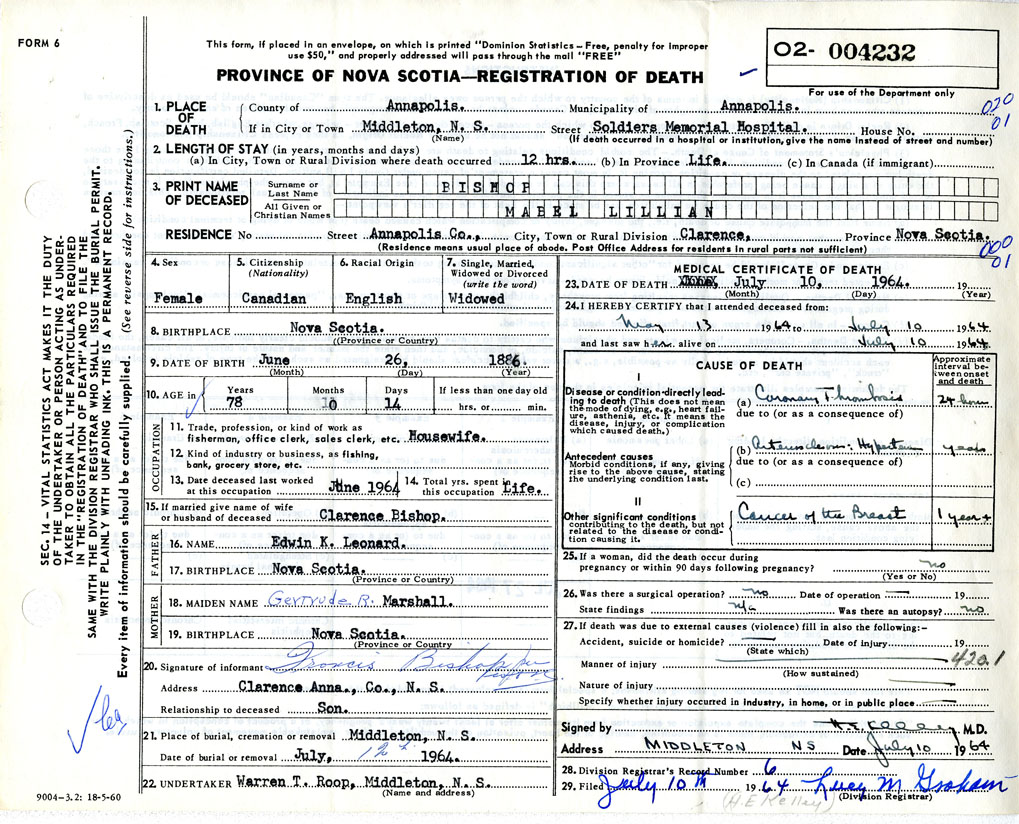 FORM 6
This form, if placed in an envelope, on which is printed "Dominion Statistics – Free, penalty for improper
use $50," and properly addressed will pass through the mail "FREE"
PROVINCE OF NOVA SCOTIA—REGISTRATION OF DEATH
02- 004232
For use of the Department only
020
01
1. PLACE OF DEATH
County of Annapolis. Municipality of Annapolis.
If in City or Town Middleton, N. S. Street Soldiers Memorial Hospital. House No.
(Name) (If death occurred in a hospital or institution, give the name instead of street and number)
2. LENGTH OF STAY (in years, months and days)
(a) In City, Town or Rural Division where death occurred 12 hrs. (b) In Province Life. (c) In Canada (if immigrant)
3. PRINT NAME OF DECEASED
Surname or Last Name BISHOP
All Given or Christian Names MABEL LILLIAN
RESIDENCE No Street Annapolis Co., City, Town or Rural Division Clarence, Province Nova Scotia.
(Residence means usual place of abode. Post Office Address for residents in rural parts not sufficient)
000
01
4. Sex Female
5. Citizenship (Nationality) Canadian
6. Racial Origin English
7. Single, Married, Widowed or Divorced (write the word) Widowed
8. BIRTHPLACE Nova Scotia.
((Province or Country)
9. DATE OF BIRTH June 26, 1886.
(Month) (Day) (Year)
10. AGE in Years 78 Months 10 Days 14 If less than one day old hrs. or min.
OCCUPATION
11. Trade, profession, or kind of work as
fisherman, office clerk, sales clerk, etc. Housewife.
12. Kind of industry or business, as fishing,
bank, grocery store, etc.
13. Date deceased last worked at this occupation June 1964
14. Total yrs. spent in this occupation Life.
15. If married give name of wife
or husband of deceased Clarence Bishop.
FATHER
16. NAME Edwin K. Leonard.
17. BIRTHPLACE Nova Scotia.
(Province or Country)
MOTHER
18. MAIDEN NAME Gertrude R. Marshall.
19. BIRTHPLACE Nova Scotia.
(Province or Country
20. Signature of informant Francis Bishop
Address Clarence Anna., Co., N. S.
Relationship to deceased Son.
21. Place of burial, cremation or removal Middleton, N. S.
Date of burial or removal July, 12th 1964.
22. UNDERTAKER Warren T. Roop, Middleton, N. S.
(Name and address)
MEDICAL CERTIFICATE OF DEATH
23. DATE OF DEATH July 10, 1964.
(Month) (Day) (Year)
24. I HEREBY CERTIFY that I attended deceased from:
May 13 1964 to July 10 1964
and last saw her alive on July 10 1964.
CAUSE OF DEATH
Approximate interval between onset and death
I
Disease or condition directly leading to death (This does not mean the mode of dying, e.g., heart failure, asthenia, etc. It means the disease, injury, or complication which caused death.)
(a) Coronary Thrombosis 24 hours
due to (or as a consequence of)
Antecedent causes
Morbid conditions, if any, giving rise to the above cause, stating the underlying condition last.
(b) years
due to (or as a consequence of)
(c)
II
Other significant conditions contributing to the death, but not related to the disease or condition causing it.
Cancer of the Breast 1 year +
25. If a woman, did the death occur during
pregnancy or within 90 days following pregnancy? no
(Yes or No)
26. Was there a surgical operation? no Date of operation 19
State findings n/a Was there an autopsy? no
27. If death was due to external causes (violence) fill in also the following:–
Accident, suicide or homicide? Date of injury 19
(State which)
Manner of injury 420.1
(How sustained)
Nature of injury
Specify whether injury occurred in industry, in home, or in public place
Signed by H. E. Kelley M.D.
Address MIDDLETON NS Date July 10 1964
28. Division Registrar's Record Number 6
29. Filed July 10th 1964 Lucy M Graham
(H.E Kelley) (Division Registrar)
SEC. 14 – VITAL STATISTICS ACT MAKES IT THE DUTY
OF THE UNDERTAKER OR PERSON ACTING AS UNDER-
TAKER TO OBTAIN ALL THE PARTICULARS REQUIRED
IN THE "REGISTRATION OF DEATH" AND TO FILE THE
SAME WITH THE DIVISION REGISTRAR WHO SHALL ISSUE THE BURIAL PERMIT.
WRITE PLAINLY WITH UNFADING INK. THIS IS A PERMANENT RECORD.
Every item of information should be carefully supplied. (See reverse side for instructions.)
9004-3.2: 18-5-60